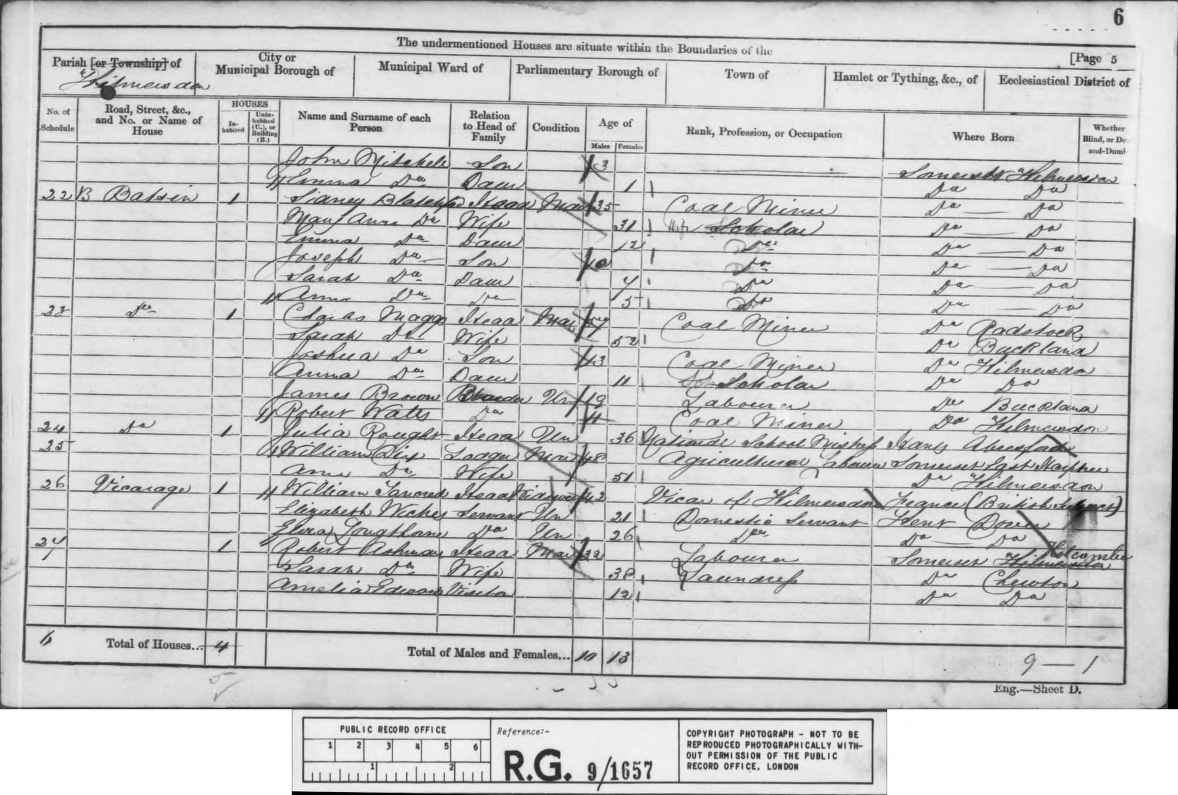 6
The undermentioned Houses are situate within the Boundaries of the
[Page 5
Parish [or Township] of
City or Municipal Borough of
Municipal Ward of
Parliamentary Borough of
Town of
Hamlet or Tything, &c., of
Ecclesiastical District of
Kilmersdon
No. of Schedule
Road, Street, &c., and No. or Name of House
HOUSES
Inhabited
Uninhabited (U.), or Building (B.)
Name and Surname of each Person
Relation to Head of Family
Condition
Age of
Males
Females
Rank, Profession, or Occupation
Where Born
Whether Blind, or Deaf-and-Dumb
John Mitchell Son 3 Somerset Kilmersdon
Emma Do Daur 1 Do Do
22 1 Sidney Head Mar 35 Coal Miner Do Do
Mary Anne Do Wife 31 Do Do
Emma Do Daur 12 Scholar Do Do Do
Joseph Do Son Do Do Do
Sarah Do Daur 7 Do Do Do
Anna Do Do 5 Do Do Do
23 Do 1 Charles Maggs Head Mar 57 Coal Miner Do Radstock
Sarah Do Wife 52 Do Buckland
Joshua Do Son Coal Miner Do Kilmersdon
Anna Do Daur 11 Scholar Do Do
James Brown Boarder Un 19 Labourer Do Buckland
Robert Watts Do Coal Miner Do Kilmersdon
24 Do 1 Julia Head Un 36 National School Mistress Hants
25 William Dix Lodger Mar 48 Agricultural Labourer Somerset
Ann Do Wife 51 Do Kilmersdon
26 Vicarage 1 William Head 42 Vicar of Kilmersdon France (British Subject)
Elizabeth Servant Un 21 Domestic Servant Kent Dover
Do Un 26 Do Do Do
27 1 Robert Ashman Head Mar 32 Labourer Somerset Holcombe
Sarah Do Wife 38 Laundress Do Chewton
Amelia Edwards Visitor 12 Do Do
6 Total of Houses... 4
Total of Males and Females... 10 13
9 — 1
Eng.—Sheet D.
PUBLIC RECORD OFFICE
1 2 3 4 5 6
1 2
Reference:-
R.G. 9/1657
COPYRIGHT PHOTOGRAPH - NOT TO BE
REPRODUCED PHOTOGRAPHICALLY WITH-
OUT PERMISSION OF THE PUBLIC
RECORD OFFICE, LONDON